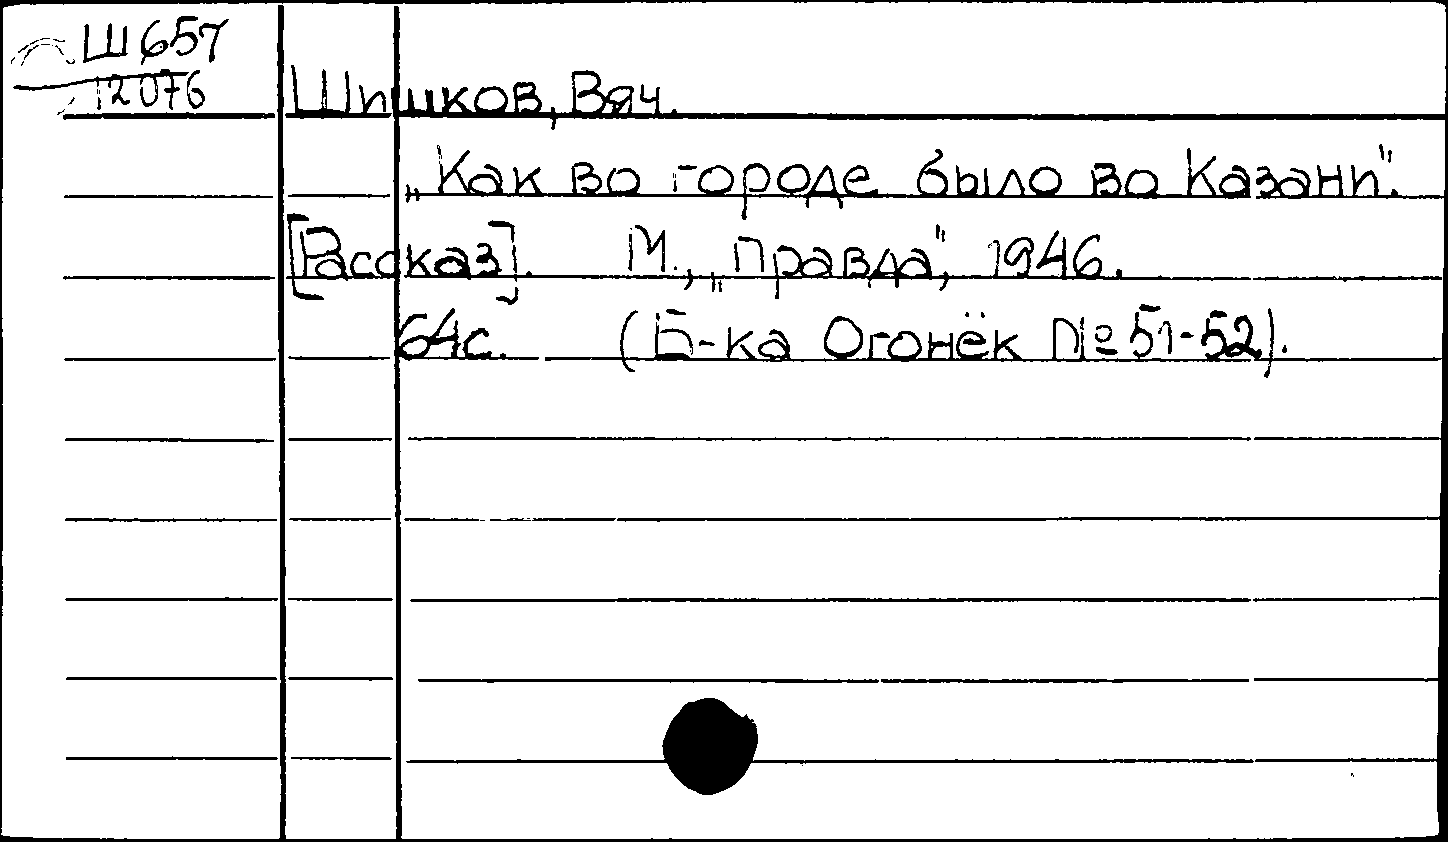 Ш657
12076
Шишков, Вяч.
„Как во городе было во Казани".
[Рассказ]. М., „Правда", 1946.
64с. (Б-ка Огонёк №51-52).